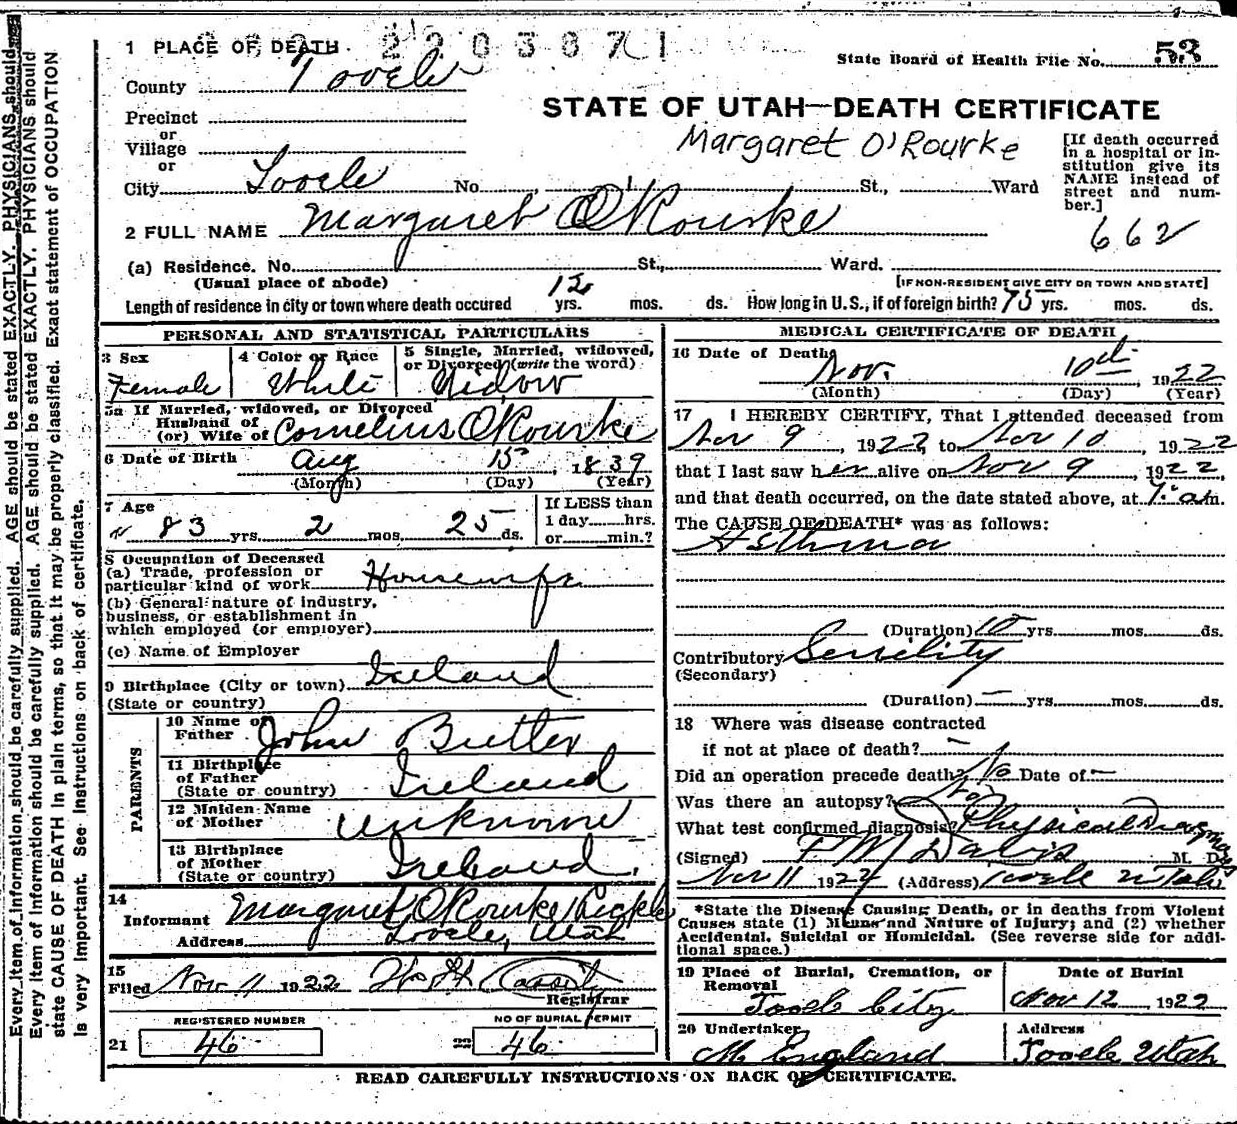 1 PLACE OF DEATH
County Tooele
State Board of Health File No. 53
STATE OF UTAH—DEATH CERTIFICATE
Margaret O'Rourke
Precinct
or
Village
or
City Tooele No. St., Ward
[If death occurred in a hospital or institution give its NAME instead of street and number.]
662
2 FULL NAME Margaret O'Rourke
(a) Residence. No. St., Ward.
(Usual place of abode) [IF NON-RESIDENT GIVE CITY OR TOWN AND STATE]
Length of residence in city or town where death occured 12 yrs. mos. ds. How long in U.S., if of foreign birth? 75 yrs. mos. ds.
PERSONAL AND STATISTICAL PARTICULARS
3 Sex Female
4 Color or Race White
5 Single, Married, widowed, or Divorced (write the word) Widow
5a If Married, widowed, or Divorced
Husband of
(or) Wife of Cornelius O'Rourke
6 Date of Birth Aug 15 1839
(Month) (Day) (Year)
7 Age 83 yrs. 2 mos. 25 ds.
If LESS than
1 day hrs.
or min.?
8 Occupation of Deceased
(a) Trade, profession or
particular kind of work Housewife
(b) General nature of industry,
business, or establishment in
which employed (or employer)
(c) Name of Employer
9 Birthplace (City or town) Ireland
(State or country)
PARENTS
10 Name of
Father John Butler
11 Birthplace
of Father Ireland
(State or country)
12 Maiden Name
of Mother Unknown
13 Birthplace
of Mother Ireland.
(State or country)
14
Informant Margaret O'Rourke
Address Tooele, Utah
15
Filed Nov 11 1922
Registrar
REGISTERED NUMBER
21 46
NO OF BURIAL PERMIT
22 46
MEDICAL CERTIFICATE OF DEATH
16 Date of Death
Nov. 10th 1922
(Month) (Day) (Year)
17 I HEREBY CERTIFY, That I attended deceased from
Nov 9, 1922, to Nov 10, 1922
that I last saw her alive on Nov 9, 1922,
and that death occurred, on the date stated above, at 7. a.m.
The CAUSE OF DEATH* was as follows:
Asthma
(Duration) 10 yrs. mos. ds.
Contributory Senility
(Secondary)
(Duration) — yrs. mos. ds.
18 Where was disease contracted
if not at place of death? —
Did an operation precede death? No Date of —
Was there an autopsy? No
What test confirmed diagnosis? Physical Diagnosis
(Signed) F M Davis M. D.
Nov 11 1922 (Address) Tooele Utah
*State the Disease Causing Death, or in deaths from Violent
Causes state (1) Means and Nature of Injury; and (2) whether
Accidental, Suicidal or Homicidal. (See reverse side for addi-
tional space.)
19 Place of Burial, Cremation, or
Removal
Tooele City
Date of Burial
Nov 12 1922
20 Undertaker
M England
Address
Tooele Utah
READ CAREFULLY INSTRUCTIONS ON BACK OF CERTIFICATE.
Every item of information should be carefully supplied. AGE should be stated EXACTLY. PHYSICIANS should
Every item of information should be carefully supplied. AGE should be stated EXACTLY. PHYSICIANS should
state CAUSE OF DEATH in plain terms, so that it may be properly classified. Exact statement of OCCUPATION
is very important. See instructions on back of certificate.